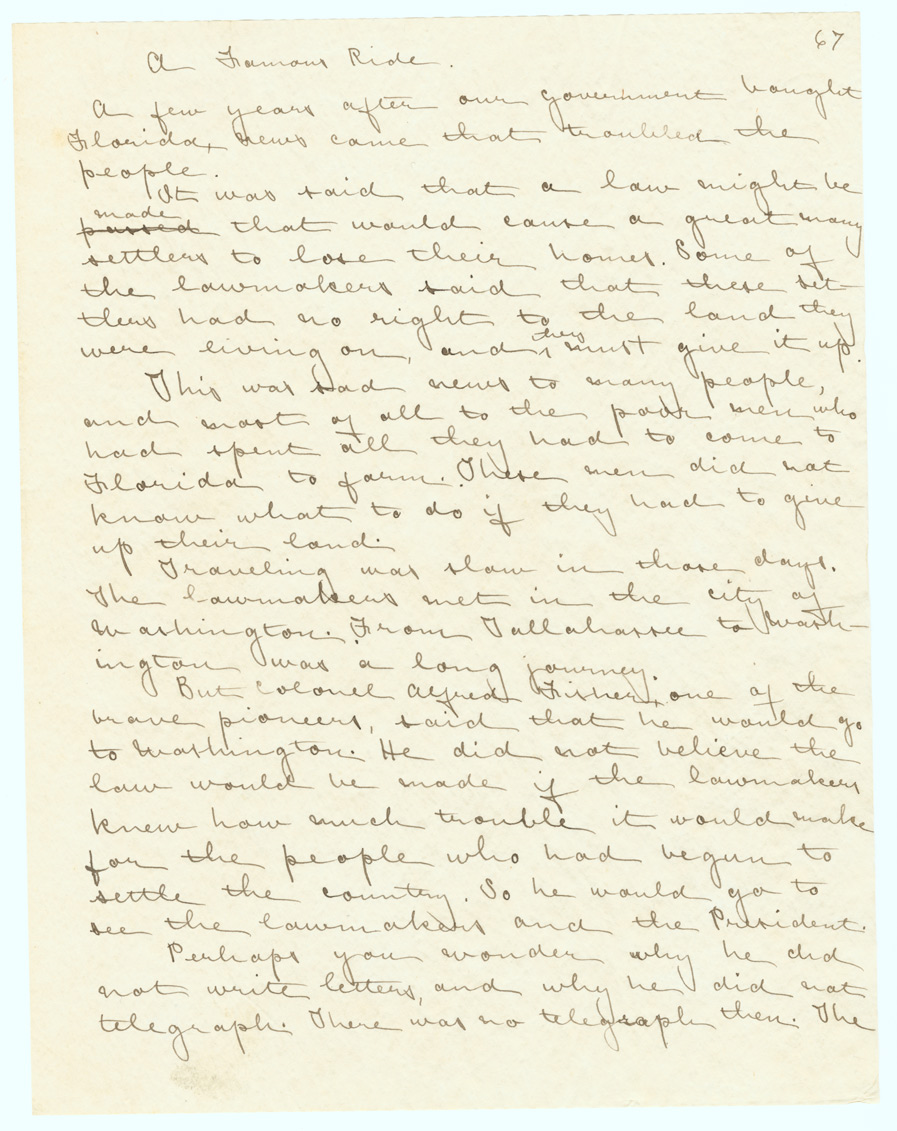 67
A Famous Ride.
A few years after our government bought
Florida, news came that troubled the
people.
It was said that a law might be
made
passed that would cause a great many
settlers to lose their homes. Some of
the lawmakers said that these set-
tlers had no right to the land they
were living on, and they must give it up.
This was sad news to many people,
and most of all to the poor men who
had spent all they had to come to
Florida to farm. These men did not
know what to do if they had to give
up their land.
Traveling was slow in those days.
The lawmakers met in the city of
Washington. From Tallahassee to Wash-
ington was a long journey.
But Colonel Alfred Fisher, one of the
brave pioneers, said that he would go
to Washington. He did not believe the
law would be made if the lawmakers
knew how much trouble it would make
for the people who had begun to
settle the country. So he would go to
see the lawmakers and the President.
Perhaps you wonder why he did
not write letters, and why he did not
telegraph. There was no telegraph then. The